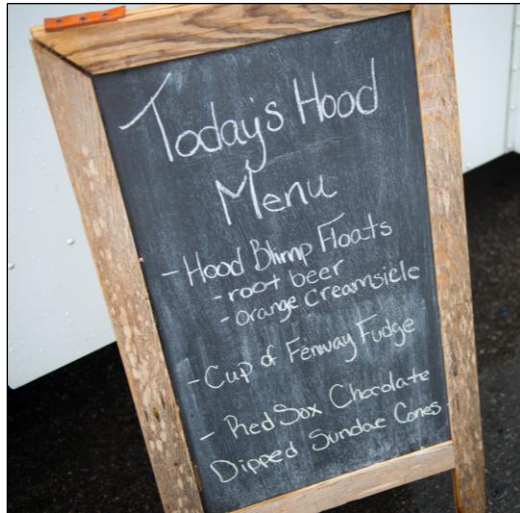 Today's Hood
Menu
- Hood Blimp Floats
- root beer
- orange Creamsicle
- Cup of Fenway Fudge
- Red Sox Chocolate
Dipped Sundae Cones